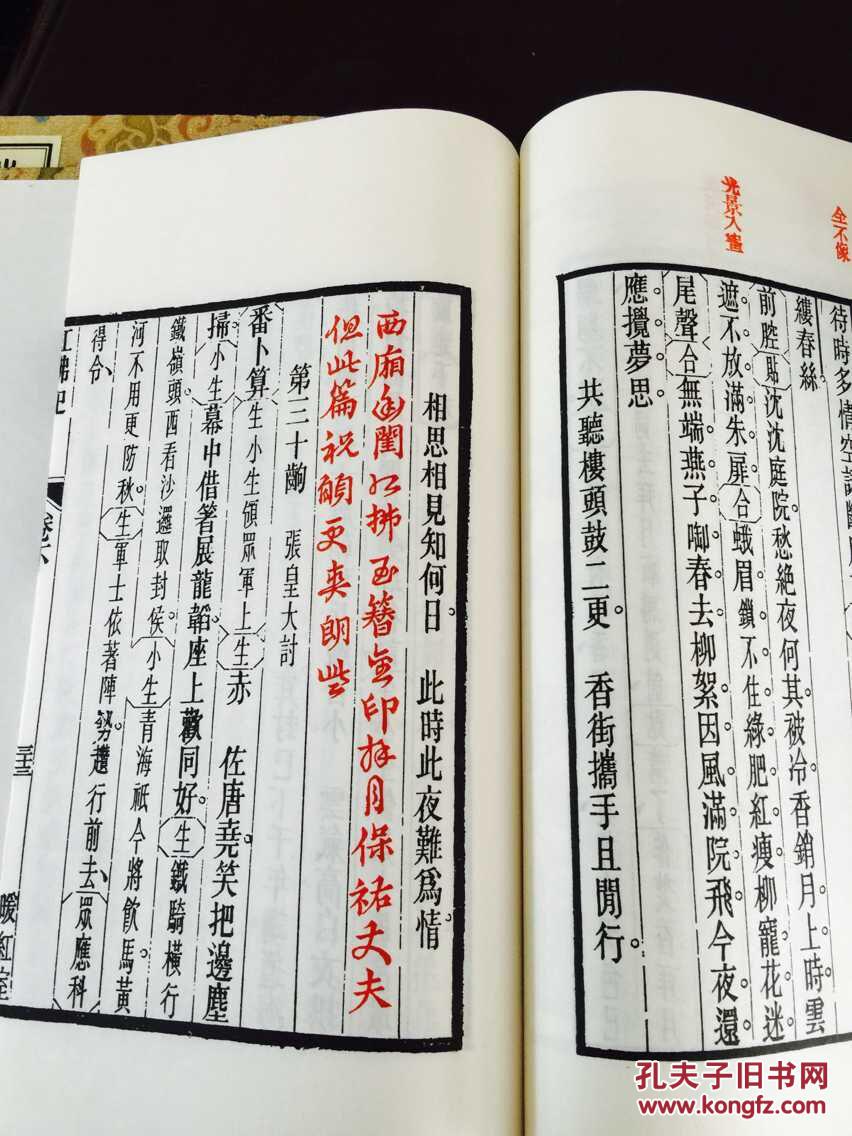 全不像
光景入畫
待時多情空
縷春絲。
前腔 貼 沈沈庭院愁絕夜何其。被冷香銷月上時。雲
遮不放滿朱扉。合 蛾眉鎖不住綠肥紅瘦柳寵花迷。
尾聲 合 無端燕子啣春去。柳絮因風滿院飛。今夜還
應攪夢思。
共聽樓頭鼓二更。 香街攜手且閒行。
相思相見知何日。 此時此夜難爲情。
西廂幽閨紅拂玉簪金印拜月保祐丈夫
但此篇祝願更爽朗些
第三十齣 張皇大討
番卜算 生小生領眾軍上 生 赤 佐唐堯。笑把邊塵
掃。小生 幕中借箸展龍韜。座上歡同好。生 鐵騎橫行
鐵嶺頭西看沙邏取封侯。小生 青海祇今將飲馬黃
河不用更防秋。生 軍士依著陣勢趲行前去、眾應科
得令、
紅拂記
卷六
三十三
暖紅室
孔夫子旧书网
www.kongfz.com